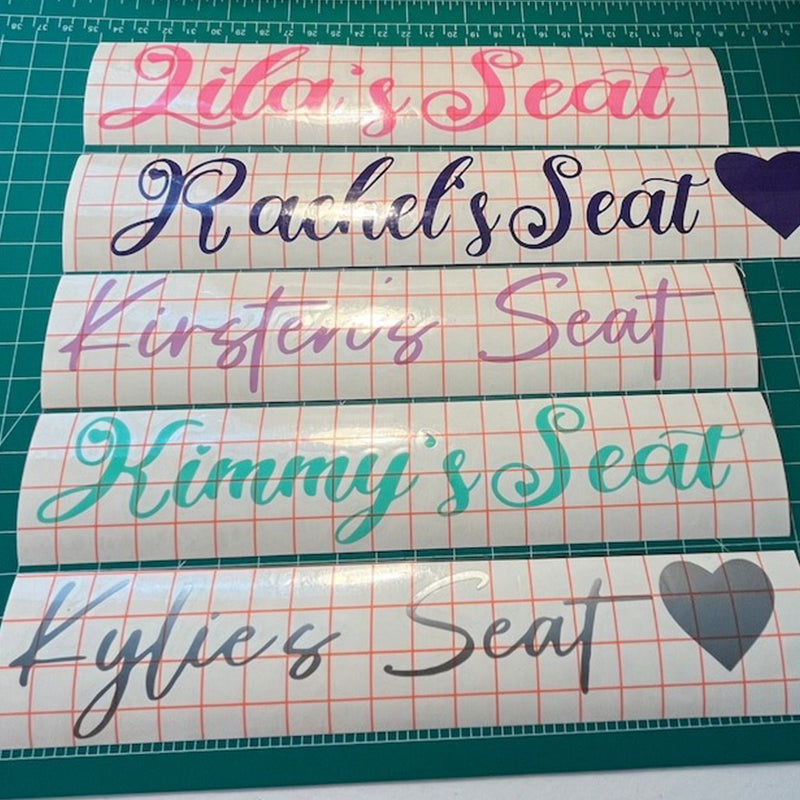 Lila's Seat
Rachel's Seat
Kirsten's Seat
Kimmy's Seat
Kylie's Seat